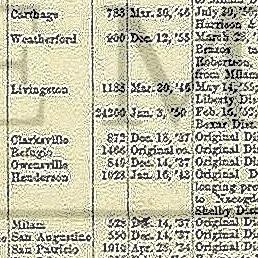 Carthage 783 Mar. 30, '46 July 20, '
Harrison &
Weatherford 900 Dec. 12, '55 March 28,
Brazos to
Robertson,
from Milam
Livingston 1188 Mar. 30, '46 May 14, '55
Liberty Dis
24260 Jan. 3, '50 Feb. 16, '52
Bexar Dist.
Clarksville 872 Dec. 18, '37 Original Di
Refugio 1466 Original co. Original Di
Owensville 840 Dec. 14, '37 Original Di
Henderson 1028 Jan. 16, '43 Original D
longing pre
to Nacog
Shelby Dist
Milam 525 Dec. 14, '37 Original Di
San Augustine 550 Dec. 14, '37 Original Di
San Patricio 1010 Apr. 28, '24 Original Di